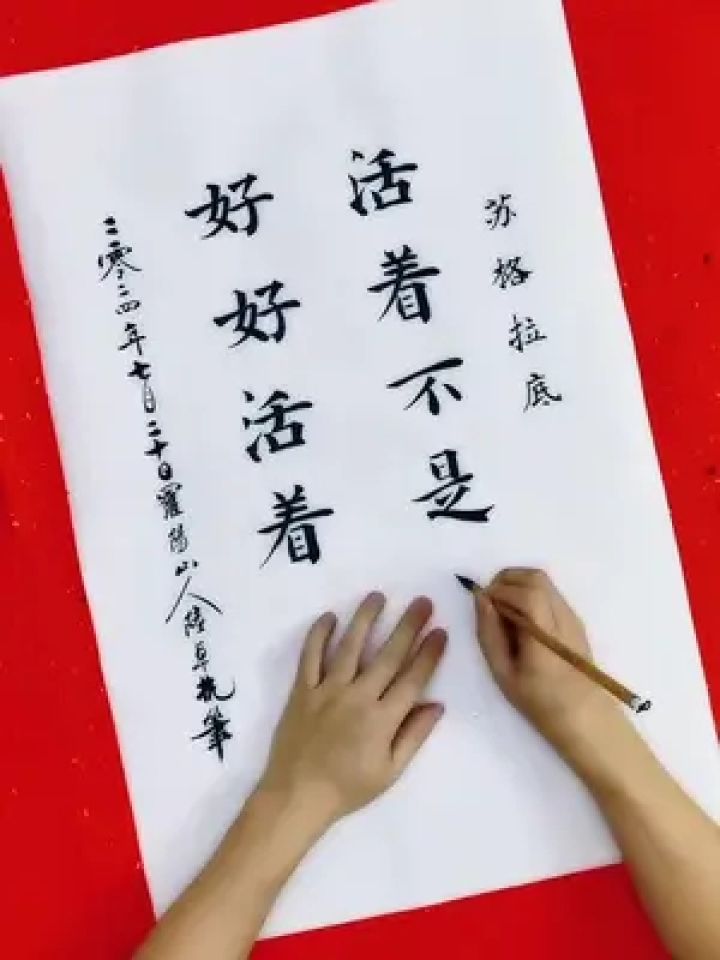 苏格拉底
活着不是
好好活着
二零二四年七月二十日罗阳山人陆卓执笔